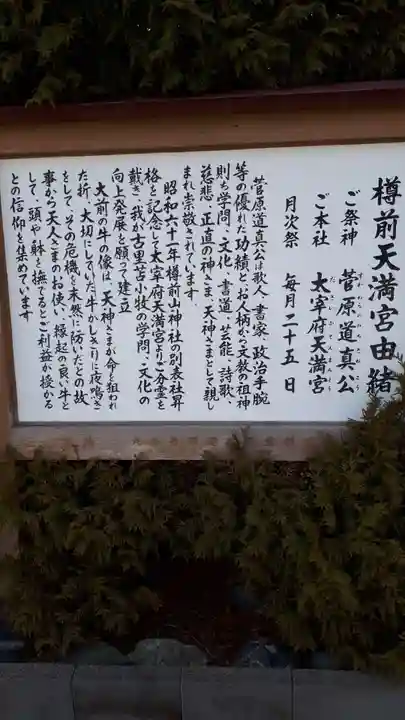 樽前天満宮由緒
ご祭神 菅原道真公
ご本社 太宰府天満宮
月次祭 毎月二十五日
菅原道真公は歌人、書家、政治手腕
等の優れた功績とお人柄から文教の祖神
則ち学問、文化、書道、芸能、詩歌、
慈悲、正直の神さま、天神さまとして親し
まれ崇敬されています。
昭和六十一年樽前山神社の別表社昇
格を記念して太宰府天満宮よりご分霊を
戴き、我が古里苫小牧の学問、文化の
向上発展を願って建立
大前の牛の像は、天神さまが命を狙われ
た折、大切にしていた牛がしきりに夜鳴き
をして、その危機を未然に防いだとの故
事から天神さまのお使い、縁起の良い牛と
して、頭や躰を撫でるとご利益が授かる
との信仰を集めています。